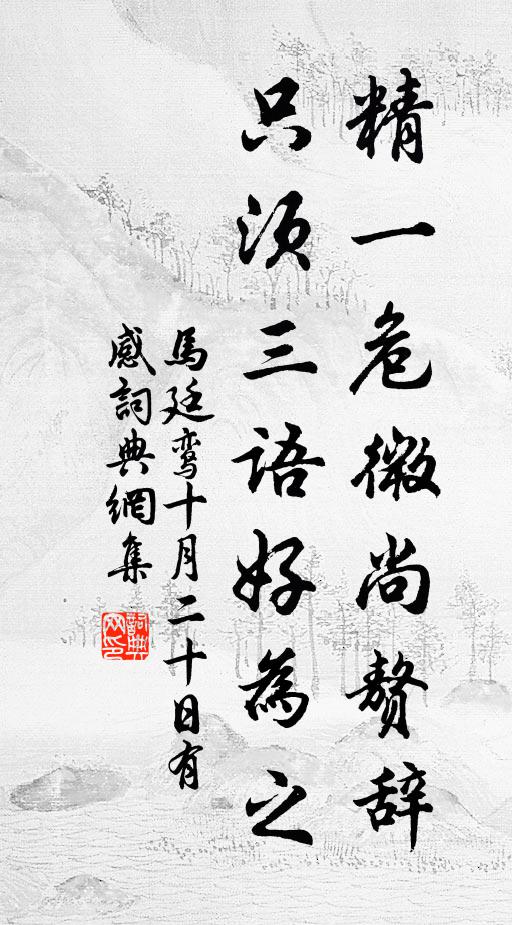 精一危微尚赘辞
只须三语好為之
馬廷鸾十月二十日有
感詞典網集
詞典
网印